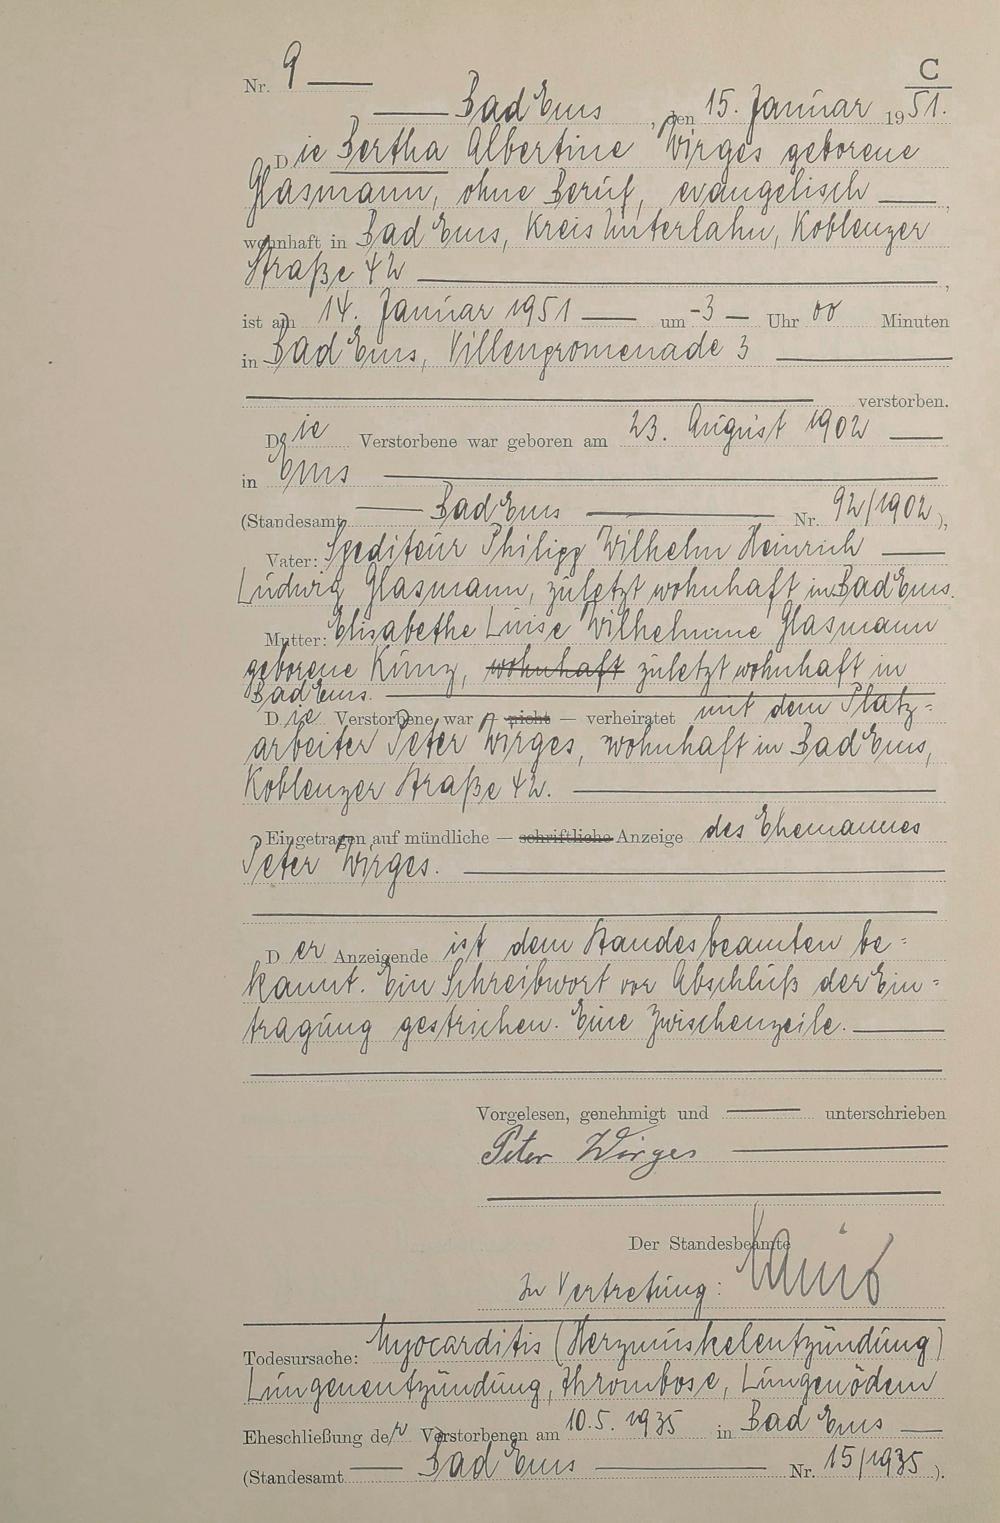 Nr. 9 C
Bad Ems, den 15. Januar 1951.
Die Bertha Albertine Wirges geborene
Glasmann, ohne Beruf, evangelisch,
wohnhaft in Bad Ems, Kreis Unterlahn, Koblenzer
Straße 42,
ist am 14. Januar 1951 um -3- Uhr 00 Minuten
in Bad Ems, Villenpromenade 3
verstorben.
Die Verstorbene war geboren am 23. August 1902
in Ems
(Standesamt Bad Ems Nr. 92/1902),
Vater: Spediteur Philipp Wilhelm Heinrich
Ludwig Glasmann, zuletzt wohnhaft in Bad Ems.
Mutter: Elisabethe Luise Wilhelmine Glasmann
geborene Kunz, wohnhaft zuletzt wohnhaft in
Bad Ems.
Die Verstorbene war — nicht — verheiratet mit dem Platz=
arbeiter Peter Wirges, wohnhaft in Bad Ems,
Koblenzer Straße 42.
Eingetragen auf mündliche — schriftliche Anzeige des Ehemannes
Peter Wirges.
Der Anzeigende ist dem Standesbeamten be=
kannt. Ein Schreibwort vor Abschluß der Ein=
tragung gestrichen. Eine Zwischenzeile.
Vorgelesen, genehmigt und unterschrieben
Peter Wirges
Der Standesbeamte
In Vertretung:
Todesursache: Myocarditis (Herzmuskelentzündung)
Lungenentzündung, Thrombose, Lungenödem
Eheschließung der Verstorbenen am 10.5.1935 in Bad Ems
(Standesamt Bad Ems Nr. 15/1935).